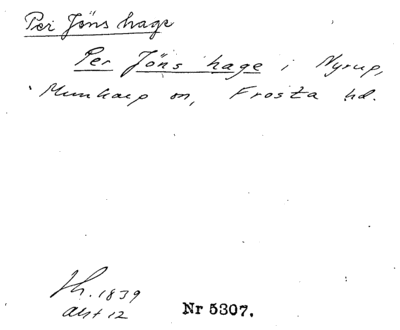 Per Jöns hage
Per Jöns hage i Nyrup,
Munkarp sn, Frosta hd.
Lh. 1839
akt 12
Nr 5307.